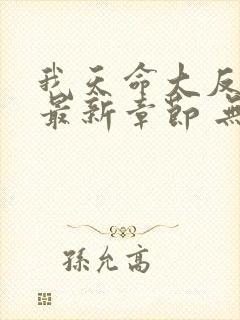 我天命大反
最新章節 無
孫允高